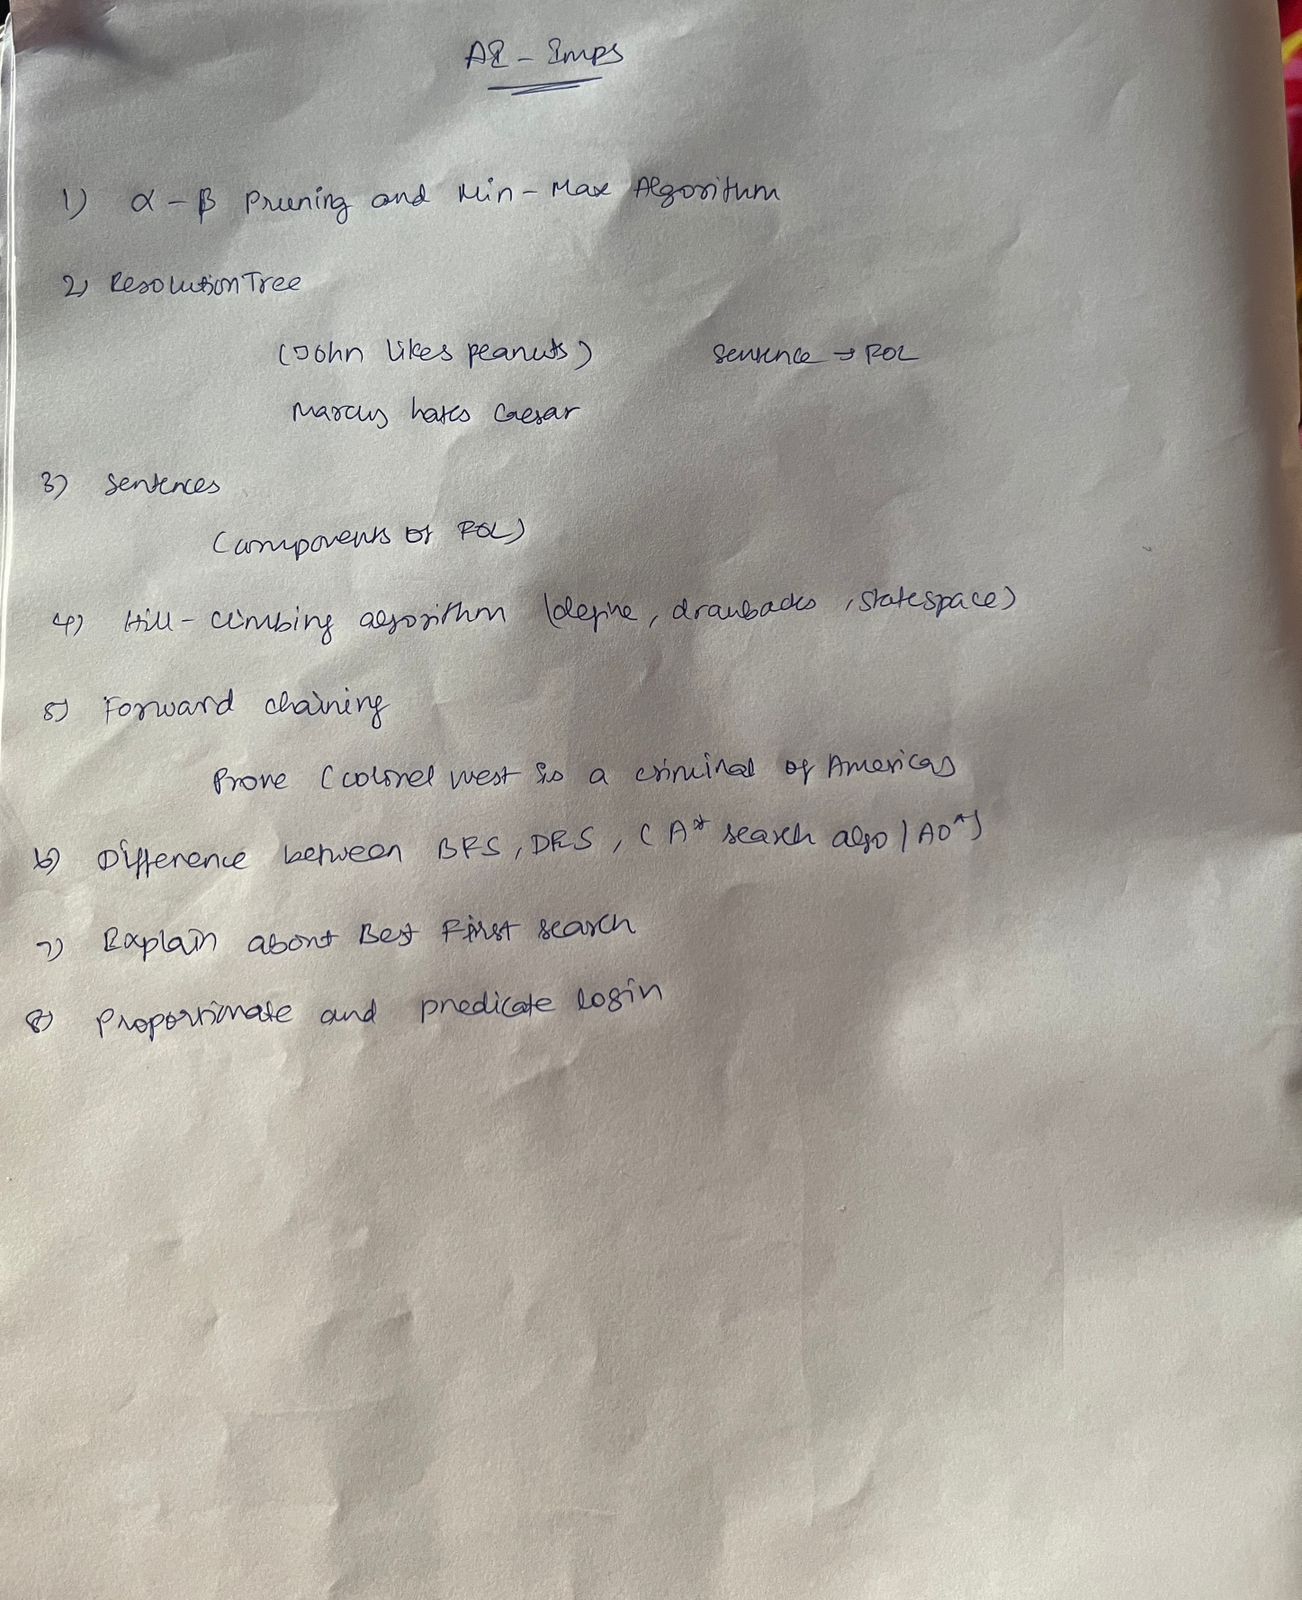 AI - Imps
1) α - β Pruning and Min - Max Algorithm
2) Resolution Tree
(John likes peanuts) Sentence → FOL
Marcus hates Caesar
3) Sentences
(components of FOL)
4) Hill - climbing algorithm (define, drawbacks, statespace)
5) Forward chaining
Prove (colonel west is a criminal of Americas
6) Difference between BFS, DFS, (A* search also / AO*)
7) Explain about Best First search
8) Proportinate and predicate login